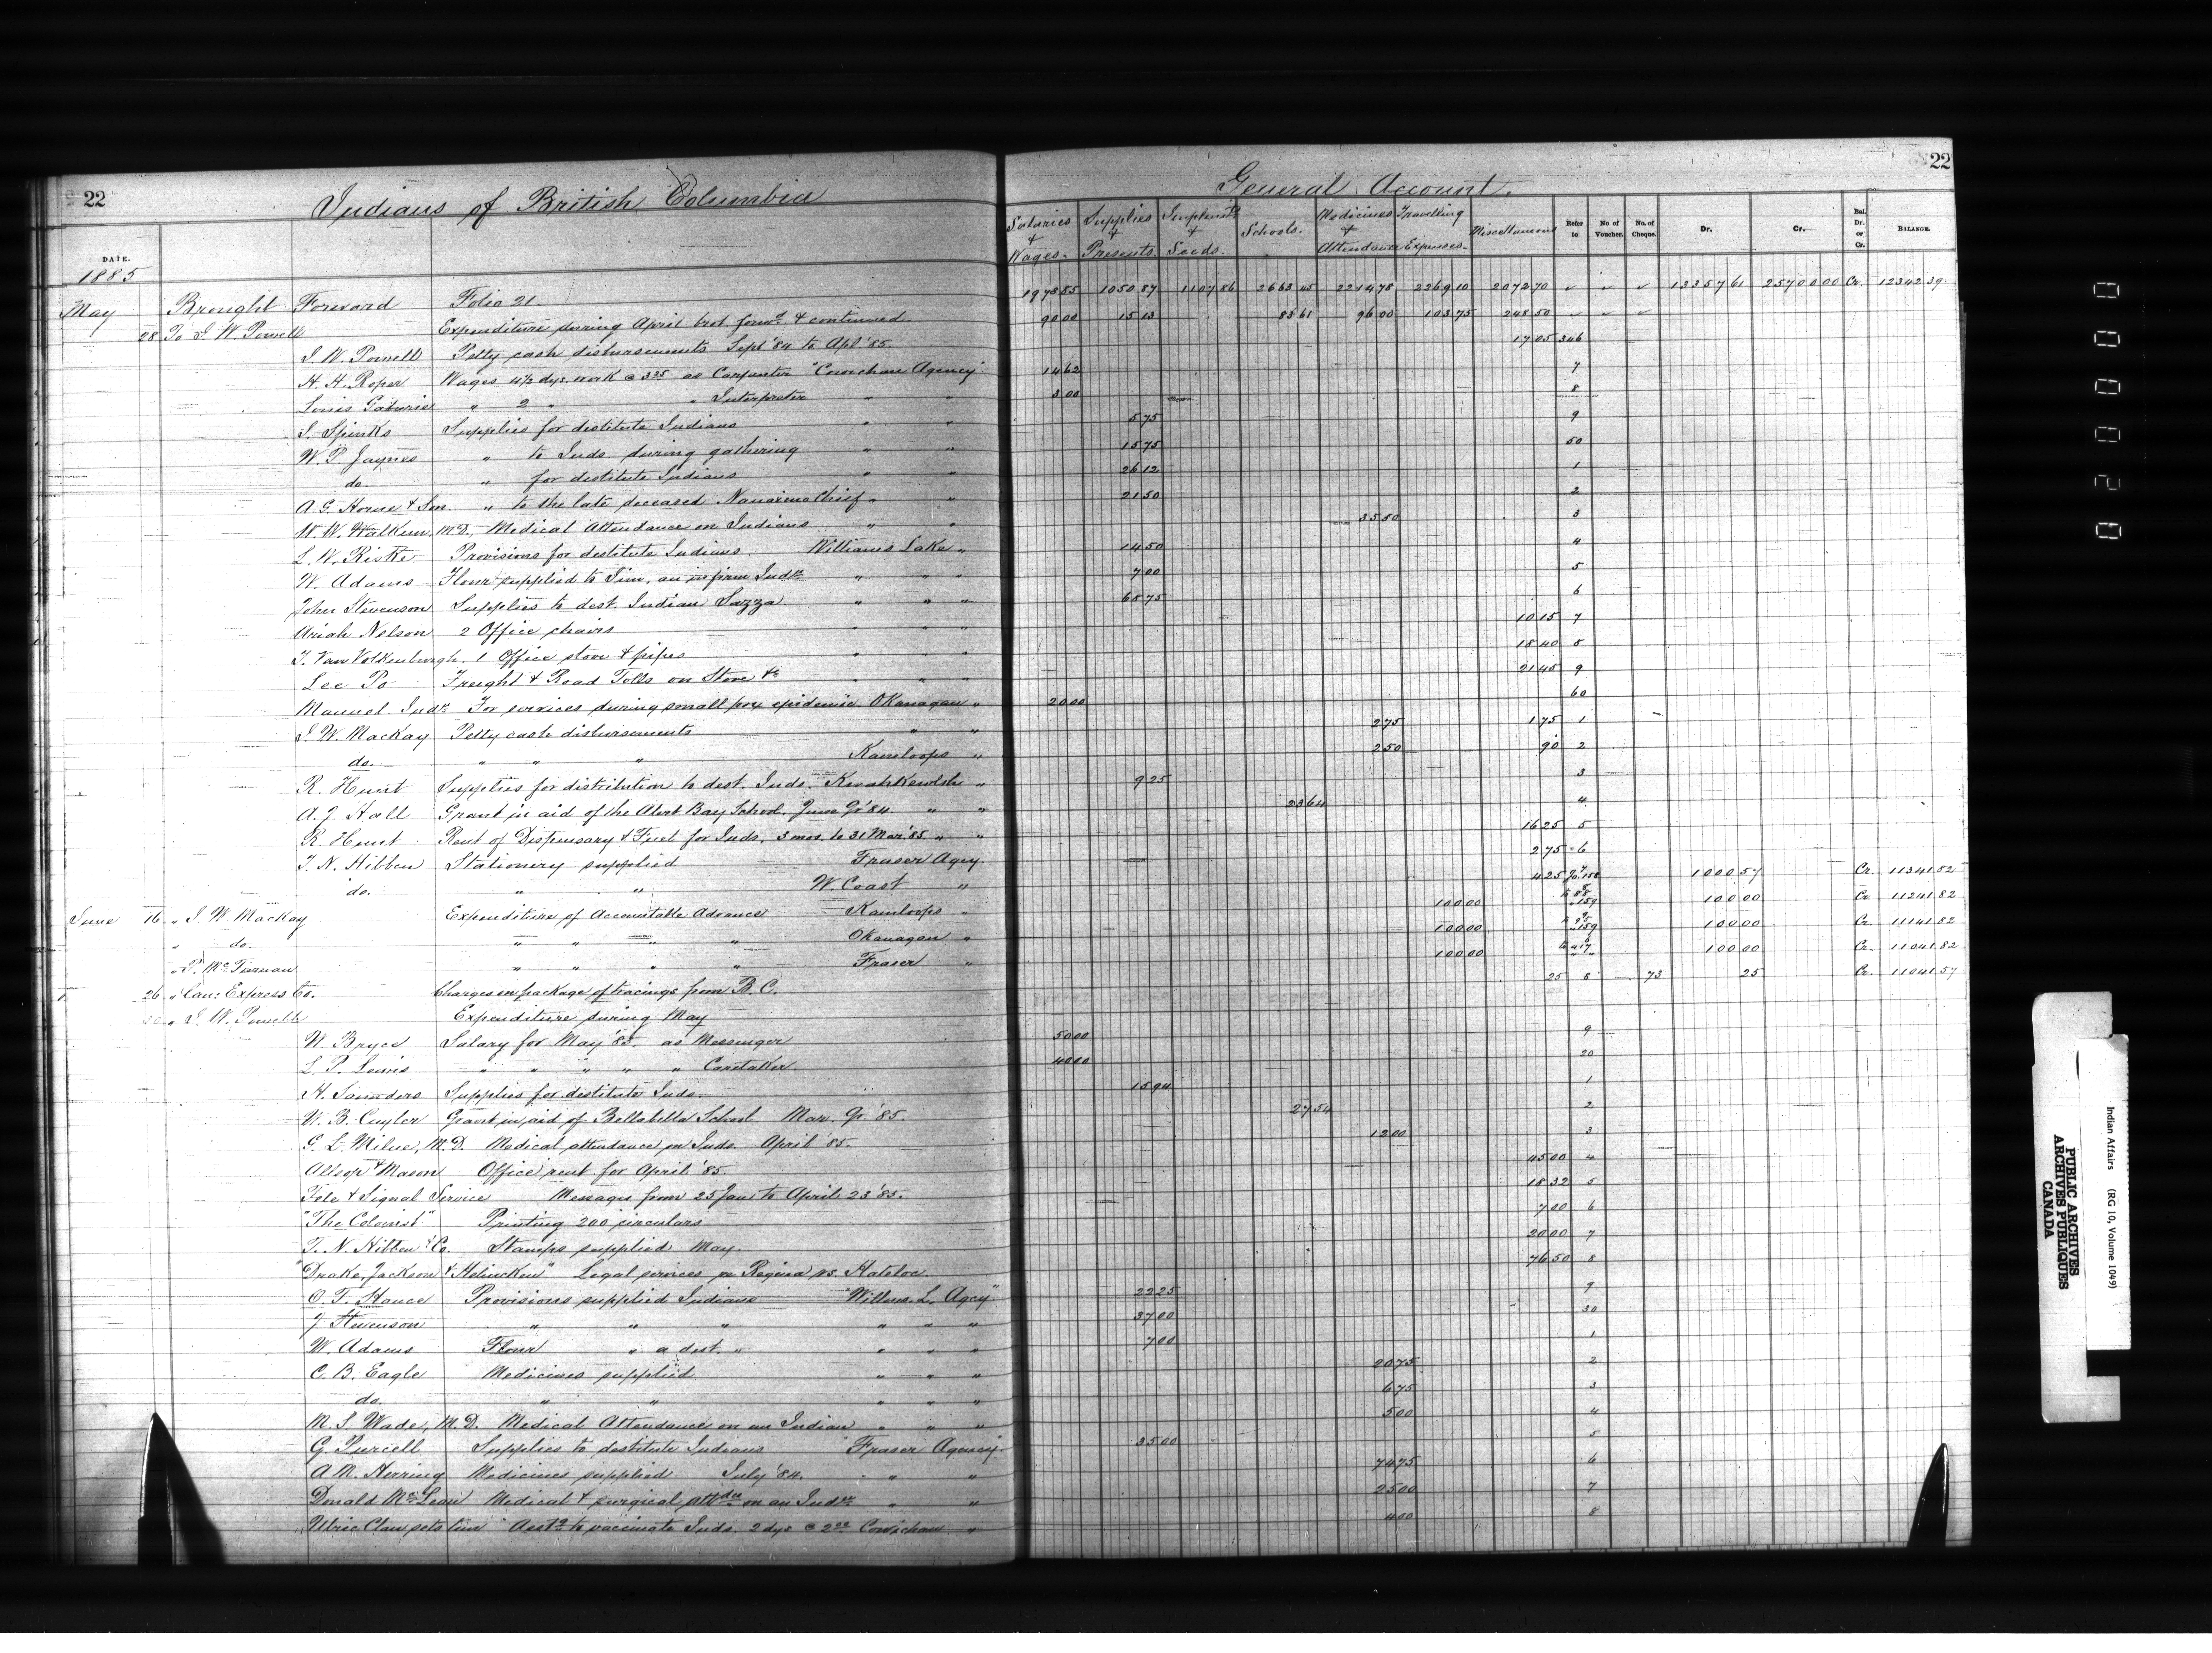 22 Indians of British Columbia General Account. 22
DATE. Salaries + Wages. Supplies + Presents Implmts + Seeds. Schools. Medicines + Attendance Travelling Expenses. Miscellaneous Refer to No of Voucher. No. of Cheque. Dr. Cr. Bal. Dr. or Cr. BALANCE.
1885
May Brought Forward Folio 21 1978 85 1050 87 1107 86 2663 45 2214 78 2269 10 2072 70 " " " 13357 61 25700 00 Cr. 12342 39
28 To I. W. Powell Expenditure during April brot forwd & continued 90 00 15 13 83 61 96 00 103 75 248 50 " " "
I. W. Powell Petty cash disbursements Sept '84 to Apl '85 17 05 346
H. H. Roper Wages 4½ dys. work @ 3 25 as Carpenter "Cowichan Agency" 14 62 7
Louis " 2 " " Interpreter " " 3 00 8
S. Spinks Supplies for destitute Indians " " 5 75 9
W. P. Jaynes " to Inds. during gathering " " 15 75 50
do. " for destitute Indians " " 26 12 1
A. G. Horne & Son. " to the late deceased Nanaimo Chief " " 21 50 2
W. W. Walkem, M.D., Medical Attendance on Indians " " 35 50 3
L. W. Riske Provisions for destitute Indians Williams Lake " 14 50 4
W. Adams Flour supplied to Jim, an infirm Indn. " " " 7 00 5
John Stevenson Supplies to dest. Indian Sazza. " " " 68 75 6
Uriah Nelson 2 Office chairs " " " 10 15 7
T. Van Volkenburgh. 1 Office stove & pipes " " " 18 40 8
Lee Po Freight & Road Tolls on Stove &c " " " 21 45 9
Manuel Indn. For services during small pox epidemic. Okanagan " 20 00 60
J. W. Mackay Petty cash disbursements " " 2 75 1 75 1
do. " " " Kamloops " 2 50 90 2
R. Hunt Supplies for distribution to dest. Inds. Kwahkewlth " 9 25 3
A. J. Hall Grant in aid of the Alert Bay School, June Qr '84 " " 23 64 4
R. Hunt Rent of Dispensary & Fuel for Inds. 3 mos. to 31 Mar. '85 " " 16 25 5
T. N. Hibben Stationery supplied Fraser Agcy. 2 75 6
do. " " W. Coast " 4 25 7 1000 57 Cr. 11341 82
June 16 " J. W. Mackay Expenditure of Accountable Advance Kamloops " 100 00 159 100 00 Cr. 11241 82
" do. " " " " Okanagan " 100 00 159 100 00 Cr. 11141 82
" P. McTiernan " " " " Fraser " 100 00 100 00 Cr. 11041 82
26 " Can: Express Co. Charges on package of tracings from B. C. 25 8 73 25 Cr. 11041 57
30 " I. W. Powell Expenditure during May
W. Bryce Salary for May '85. as Messenger 50 00 9
L. P. Lewis " " " " " Caretaker. 40 00 20
H. Saunders Supplies for destitute Inds. 15 94 1
W. B. Cuyler Grant in aid of Bellabella School Mar. Qr. '85 27 54 2
G. L. Milne, M.D. Medical attendance on Inds. April '85. 12 00 3
Allsop & Mason Office rent for April '85. 45 00 4
Tele & Signal Service Messages from 25 Jan to April 23 '85. 18 32 5
"The Colonist" Printing 200 circulars 7 00 6
T. N. Hibben & Co. Stamps supplied May. 20 00 7
"Drake, Jackson & Helmcken" Legal services re Regina vs. 76 50 8
O. T. Hance Provisions supplied Indians "Willms. L. Agcy" 22 25 9
J. Stevenson " " " " " " 37 00 30
W. Adams Flour " a dest. " " " " 7 00 1
C. B. Eagle Medicines supplied " " " 20 75 2
do. " " " " " 6 75 3
M. S. Wade, M.D. Medical Attendance on an Indian " " " 5 00 4
G. Purcell Supplies to destitute Indians "Fraser Agency. 35 00 5
A. M. Herring Medicines supplied July '84. " " 74 75 6
Donald McLean Medical & surgical attdce on an Indn. " " 25 00 7
Ulric Asstg to vaccinate Inds. 2 dys @ 2 00 Cowichan " 4 00 8
00020
PUBLIC ARCHIVES
ARCHIVES PUBLIQUES
CANADA
Indian Affairs (RG 10, Volume 1049)